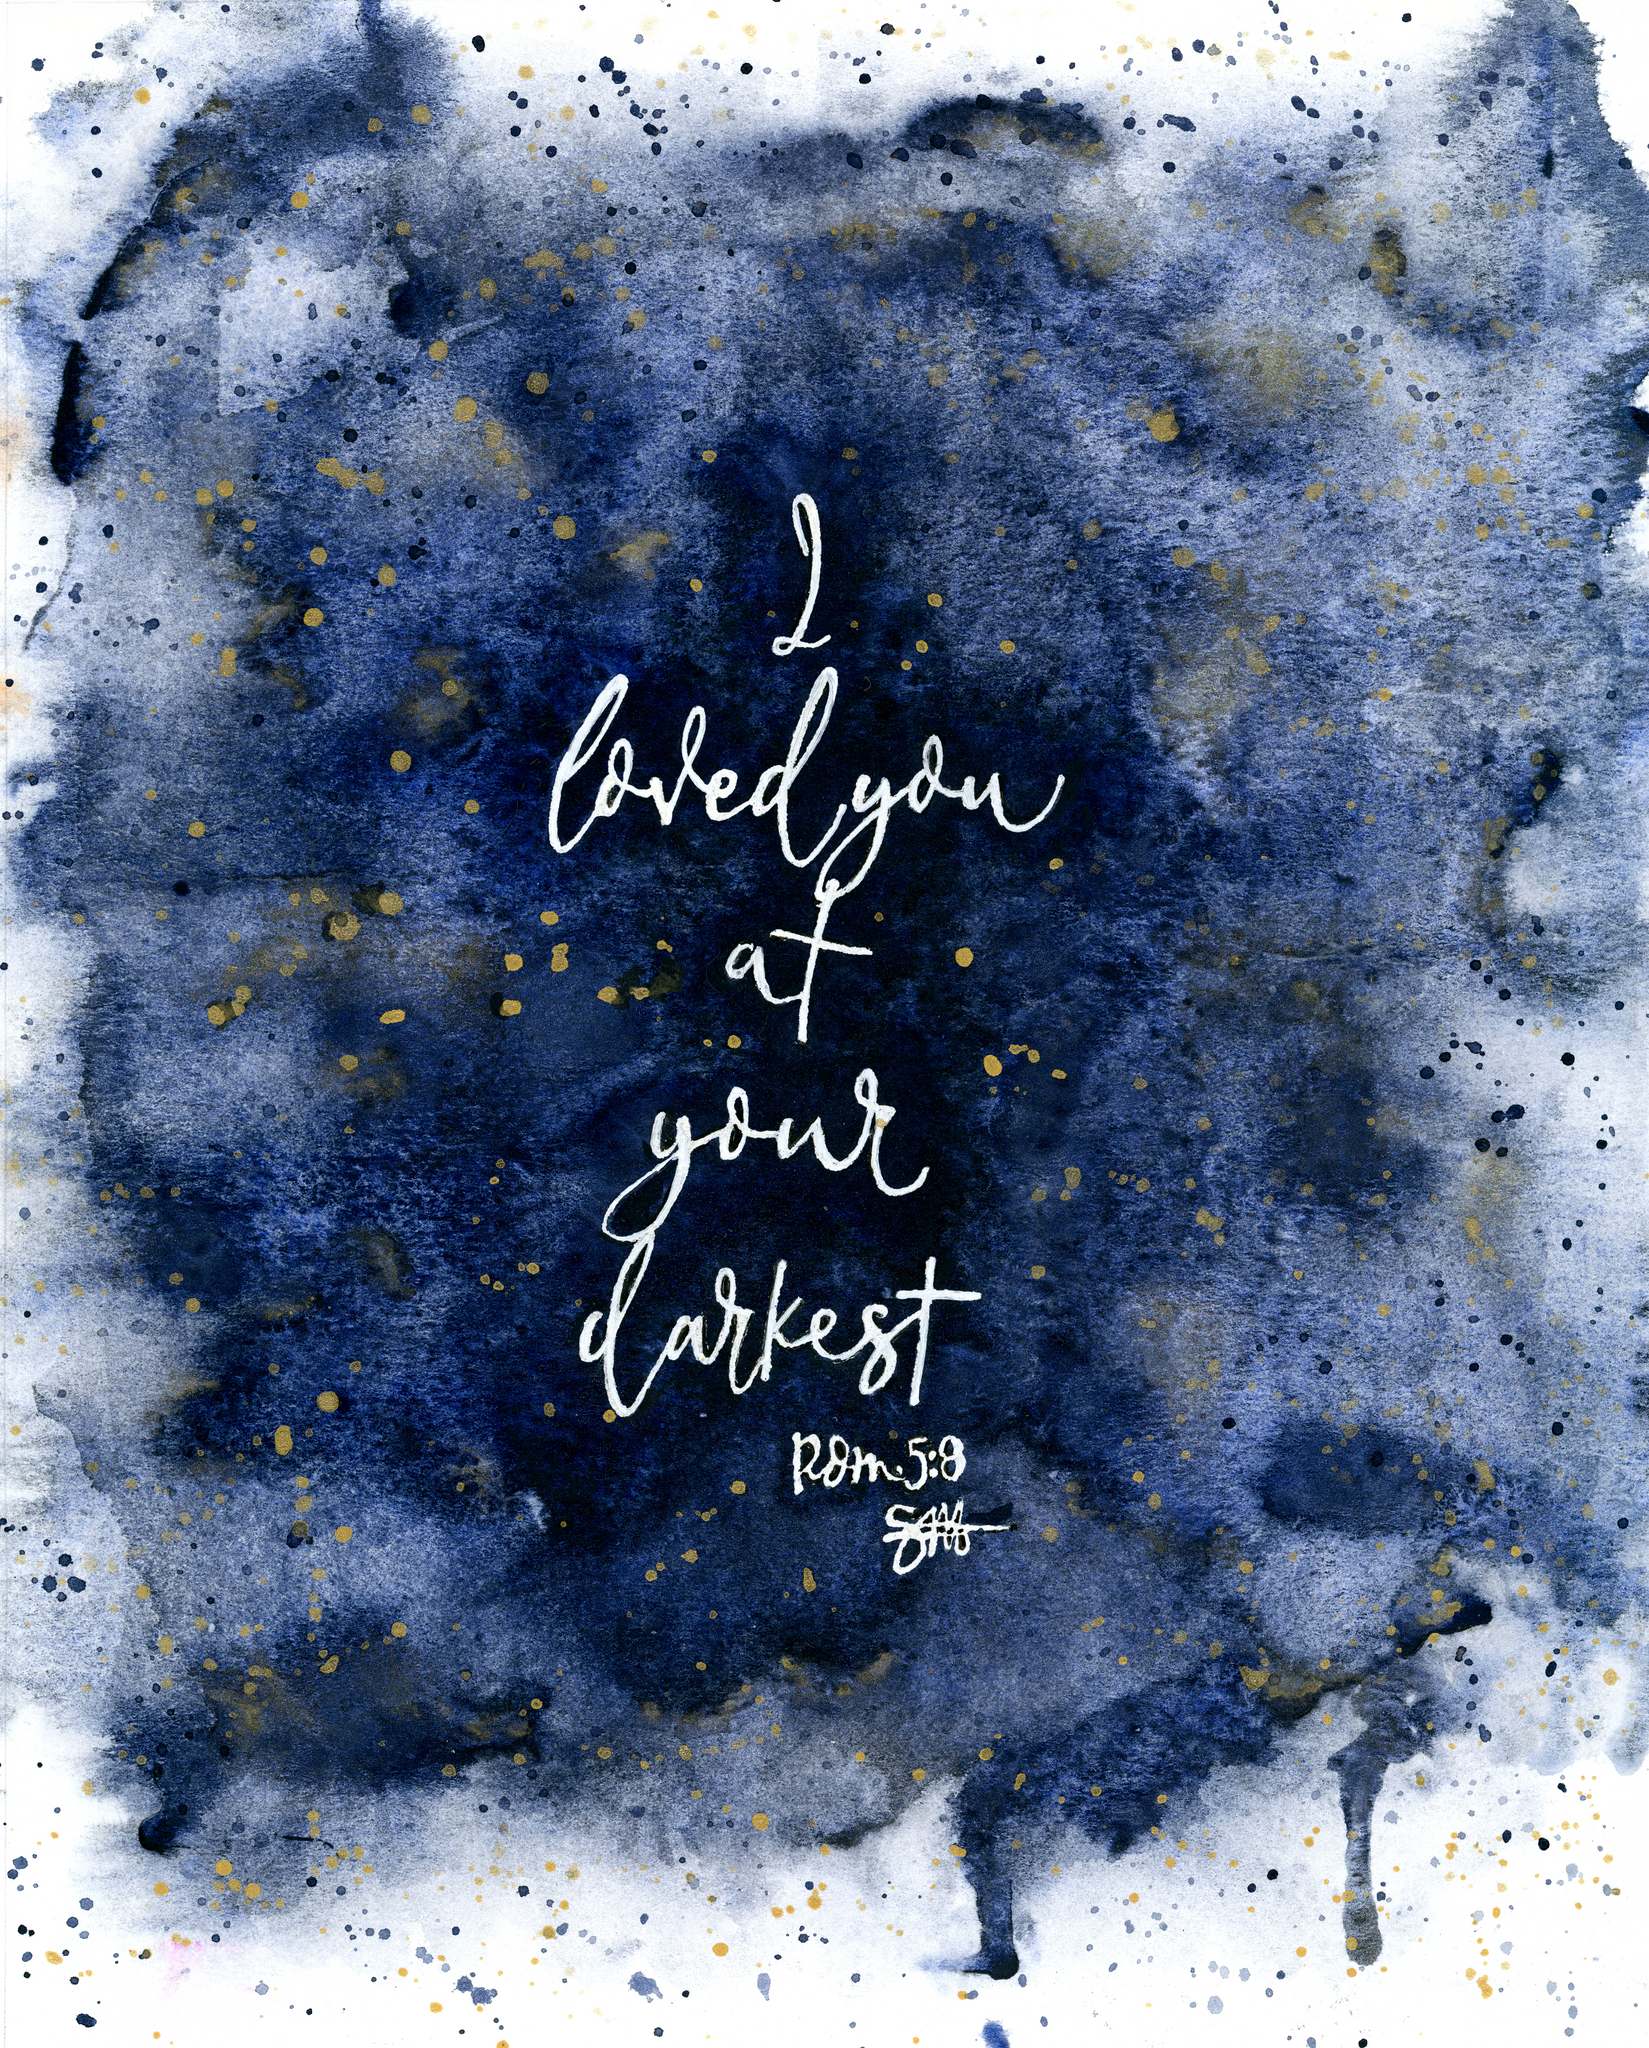 I
loved you
at
your
darkest
Rom. 5:8